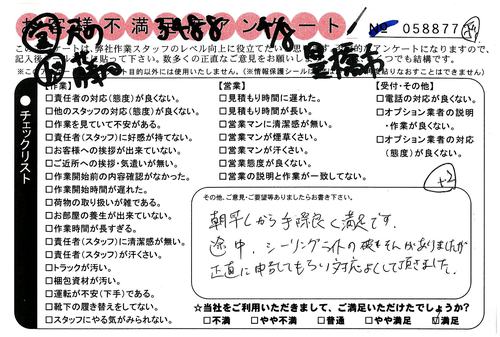 お客様不満足度アンケート
№ 058877
このアンケートは、弊社作業スタッフのレベル向上に役立てたい
記入後
に貼って下さい。数多くの正直なご意見をお願いし
ケートになりますので、
つもも結構です。
【作業】
□責任者の対応(態度)が良くない。
□他のスタッフの対応(態度)が良くない。
□作業を見ていて安がある。
□責任者(スタッフ)に好感が持てない。
□お客様への挨拶が出来ていない。
□ご近所への挨拶・気遣いが無い。
□作業開始前の内容確認がなかった。
□作業開始時間が遅れた。
□荷物の取り扱いが雑である。
□お部屋の養生が出来ていない。
□作業時間が長すぎる。
□責任者(スタッフ)に清潔感が無い。
□責任者(スタッフ)が汗くさい。
□トラックが汚い。
□梱包資材が汚い。
□運転が不安(下手)である。
□靴下の履き替えをしてない。
□スタッフにやる気がみられない。
【営業】
□見積もり時間に遅れた。
□見積もり時間が長い。
□営業マンに清潔感が無い。
□営業マンが煙草くさい。
□営業マンが汗くさい。
□営業態度が良くない。
□営業の説明と作業が一致してない。
【受付・その他】
□電話の対応が良くない。
□オプション業者の説明
・作業が良くない。
□オプション業者の対応
(態度)が良くない。
●チェックリスト
+2
その他、ご意見・ご要望等ありましたらお書き下さい。
朝早くから手際良く満足です。
途中、シーリングライトの破そんがありましたが
正直に申告してもらい対応よくして頂きました。
☆当社をご利用いただきまして、ご満足いただけたでしょうか?
□不満 □やや不満 □普通 □やや満足 ☑満足